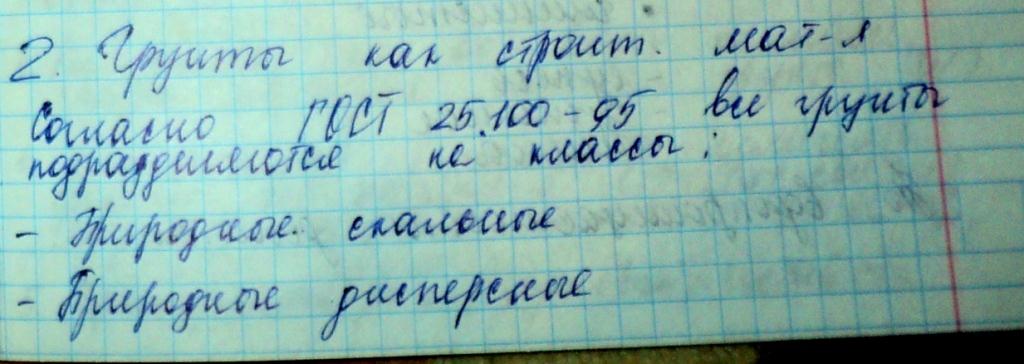 2. Грунты как строит. мат-л
Согласно ГОСТ 25.100-95 все грунты
подразделяются на классы:
- Природные скальные
- Природные дисперсные